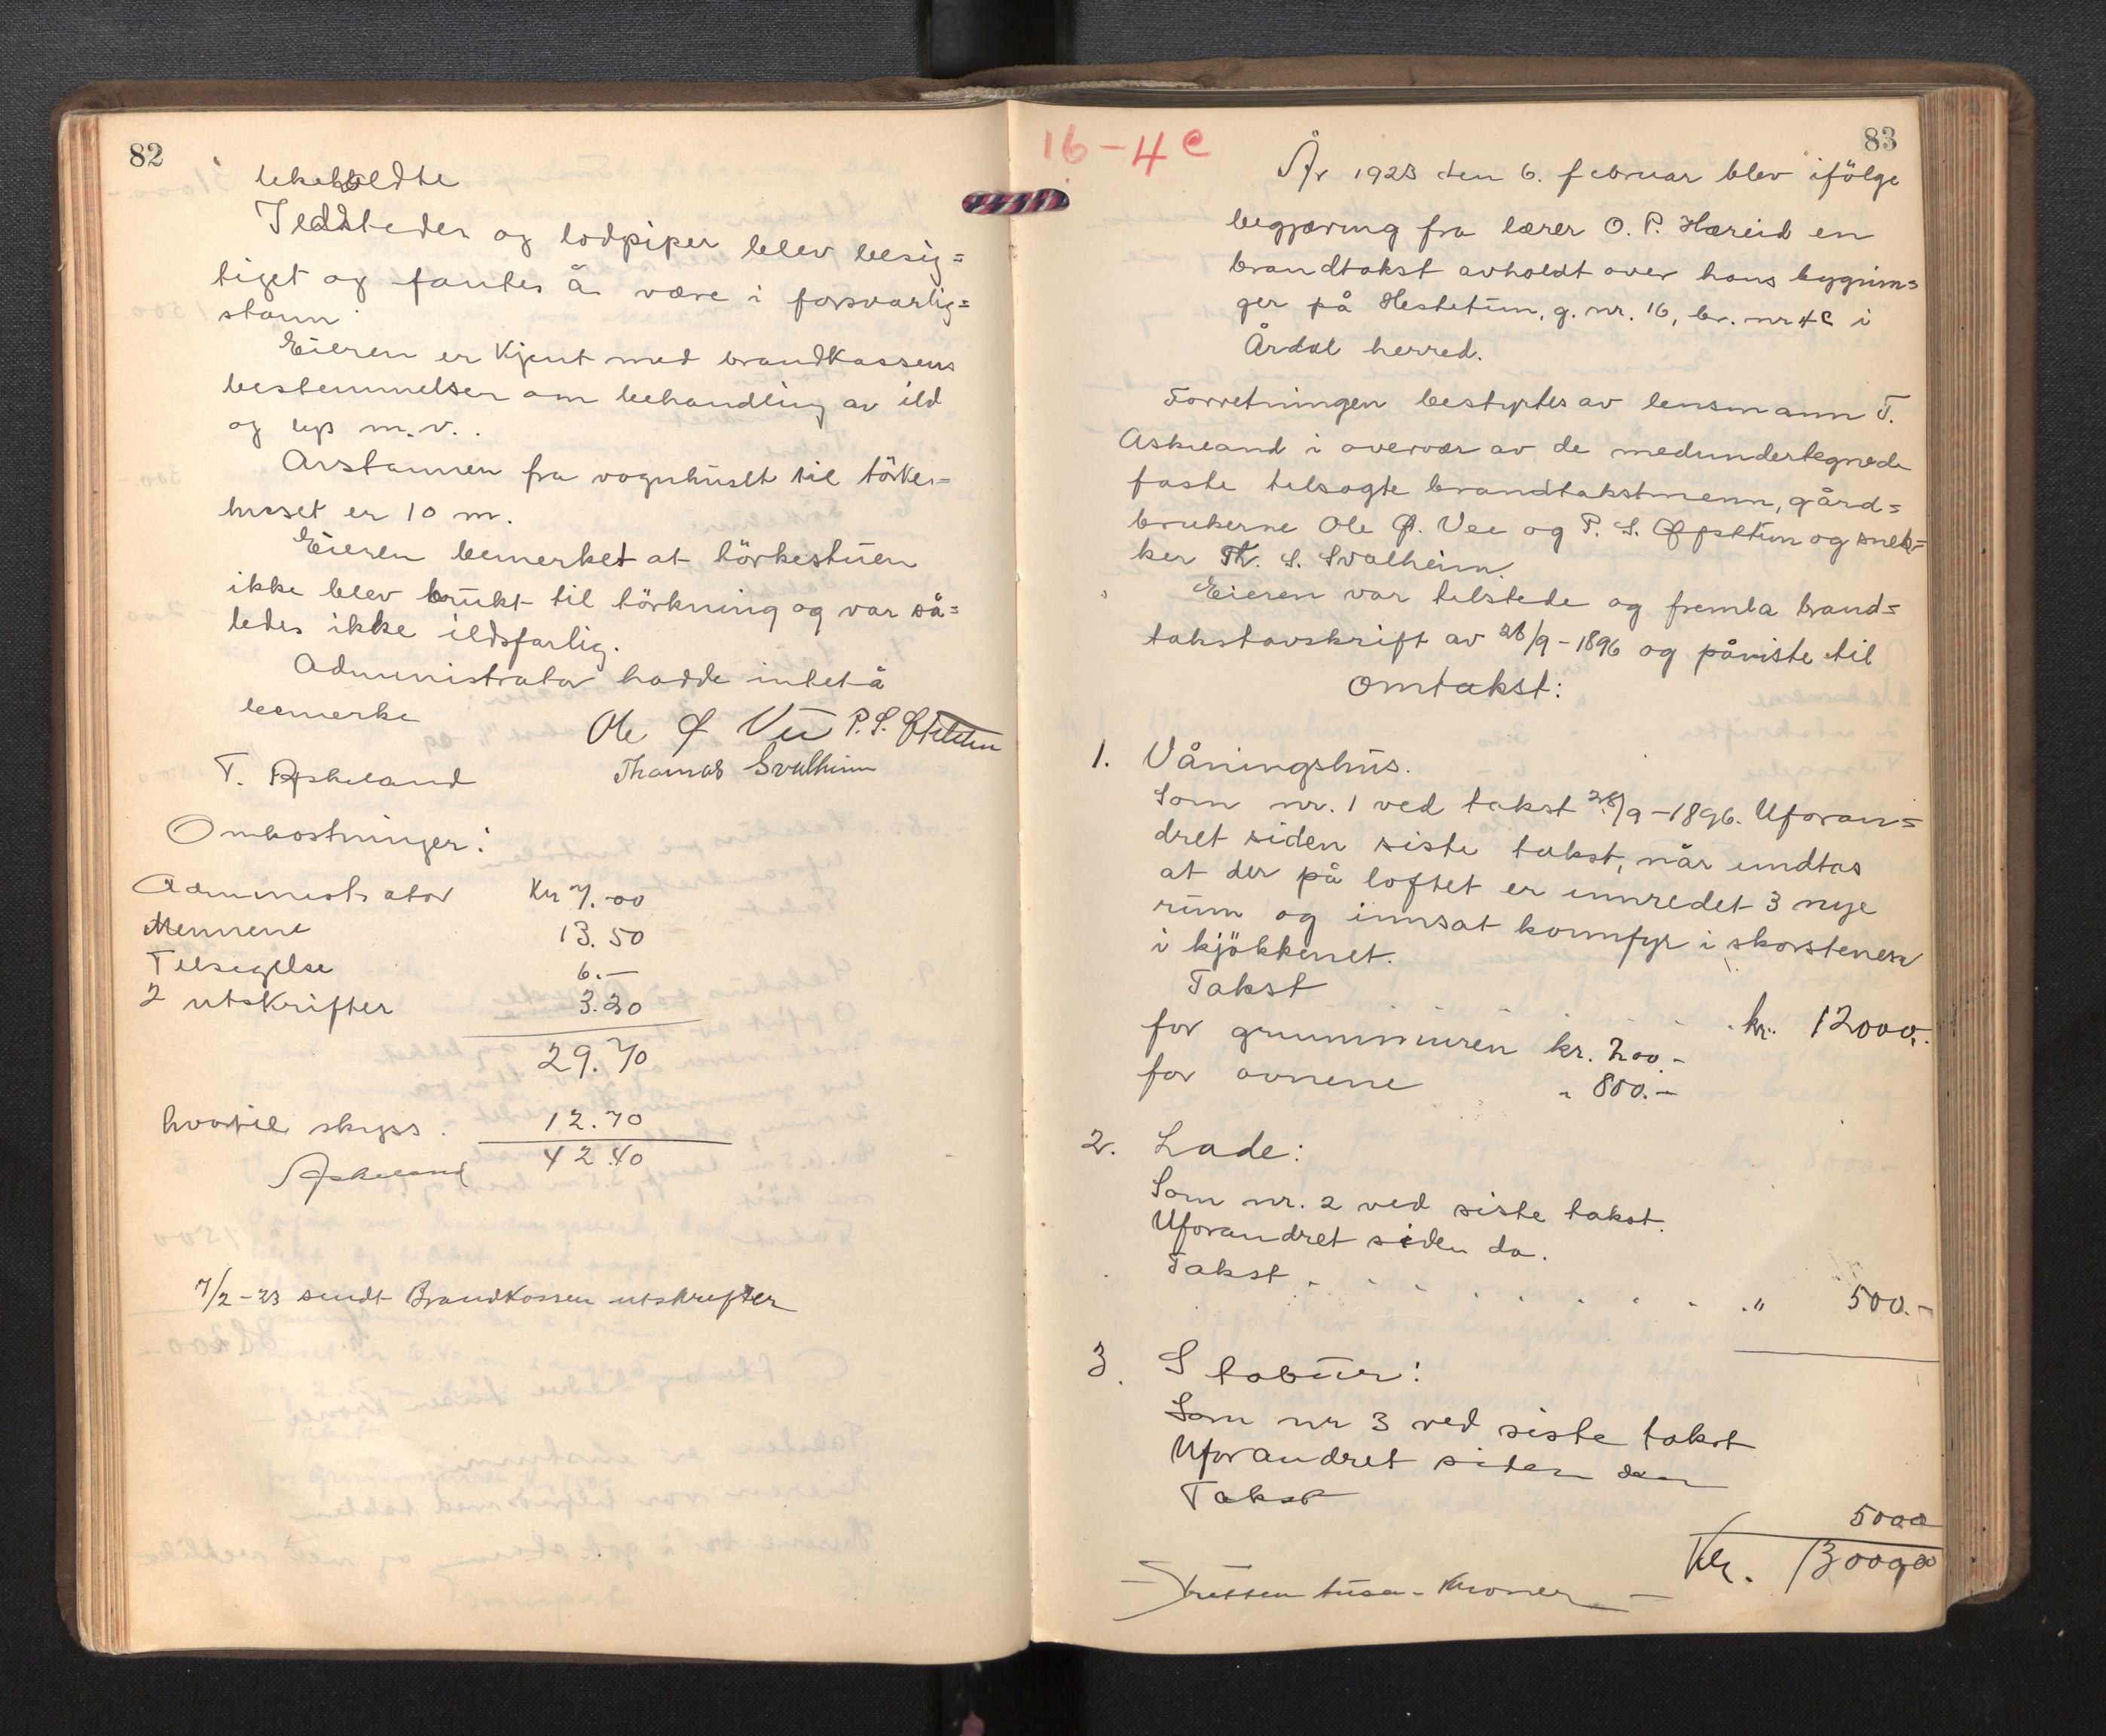 82
Ildsteder og lodpiper blev besig=
tiget og fantes å være i forsvarlig=
stann.
Eieren er kjent med brandkassens
bestemmelser om behandling av ild
og lys m.v..
Avstannen fra vognhuset til törke=
huset er 10 m.
Eieren bemerket at törkestuen
ikke blev brukt til törkning og var så=
ledes ikke ildsfarlig.
Administrator hadde intet å
bemerke
Ole Ø Vee P. S. Øfstetun
T. Askeland Thomas Svalheim
Omkostninger:
Administrator Kr 7.00
Mennene 13.50
Tilsigelse 6.—
2 utskrifter 3.20
29.70
hvortil skyss. 12.70
42.40
Askeland
7/2-23 sendt Brandkassen utskrifter
16-4c
83
År 1923 den 6. februar blev ifölge
begjæring fra lærer O. P. Hæreid en
brandtakst avholdt over hans bygnin=
ger på Hestetun, g. nr. 16, br. nr 4c i
Årdal herred.
Forretningen bestyrtes av lensmann T.
Askeland i overvær av de medundertegnede
faste tilsagte brandtakstmenn, gård=
brukerne Ole Ø. Vee og P. S. Øfstetun og snek=
ker Th. S. Svalheim.
Eieren var tilstede og fremla brand=
takstavskrift av 28/9-1896 og påviste til
omtakst:
1. Våningshus.
Som nr. 1 ved takst 28/9-1896. Uforan=
dret siden siste takst, når undtas
at der på loftet er innredet 3 nye
rum og innsat komfyr i skorstenen
i kjökkenet.
Takst . . . kr. 12000.-
for grunnmuren kr. 200.-
for ovnene " 800.-
2. Lade:
Som nr. 2 ved siste takst.
Uforandret siden da.
Takst . . . . . . . . " 500.-
3. Stabur:
Som nr 3 ved siste takst
Uforandret siden den
Takst
5000
Kr. 13000.00
— Tretten tusen Kroner —